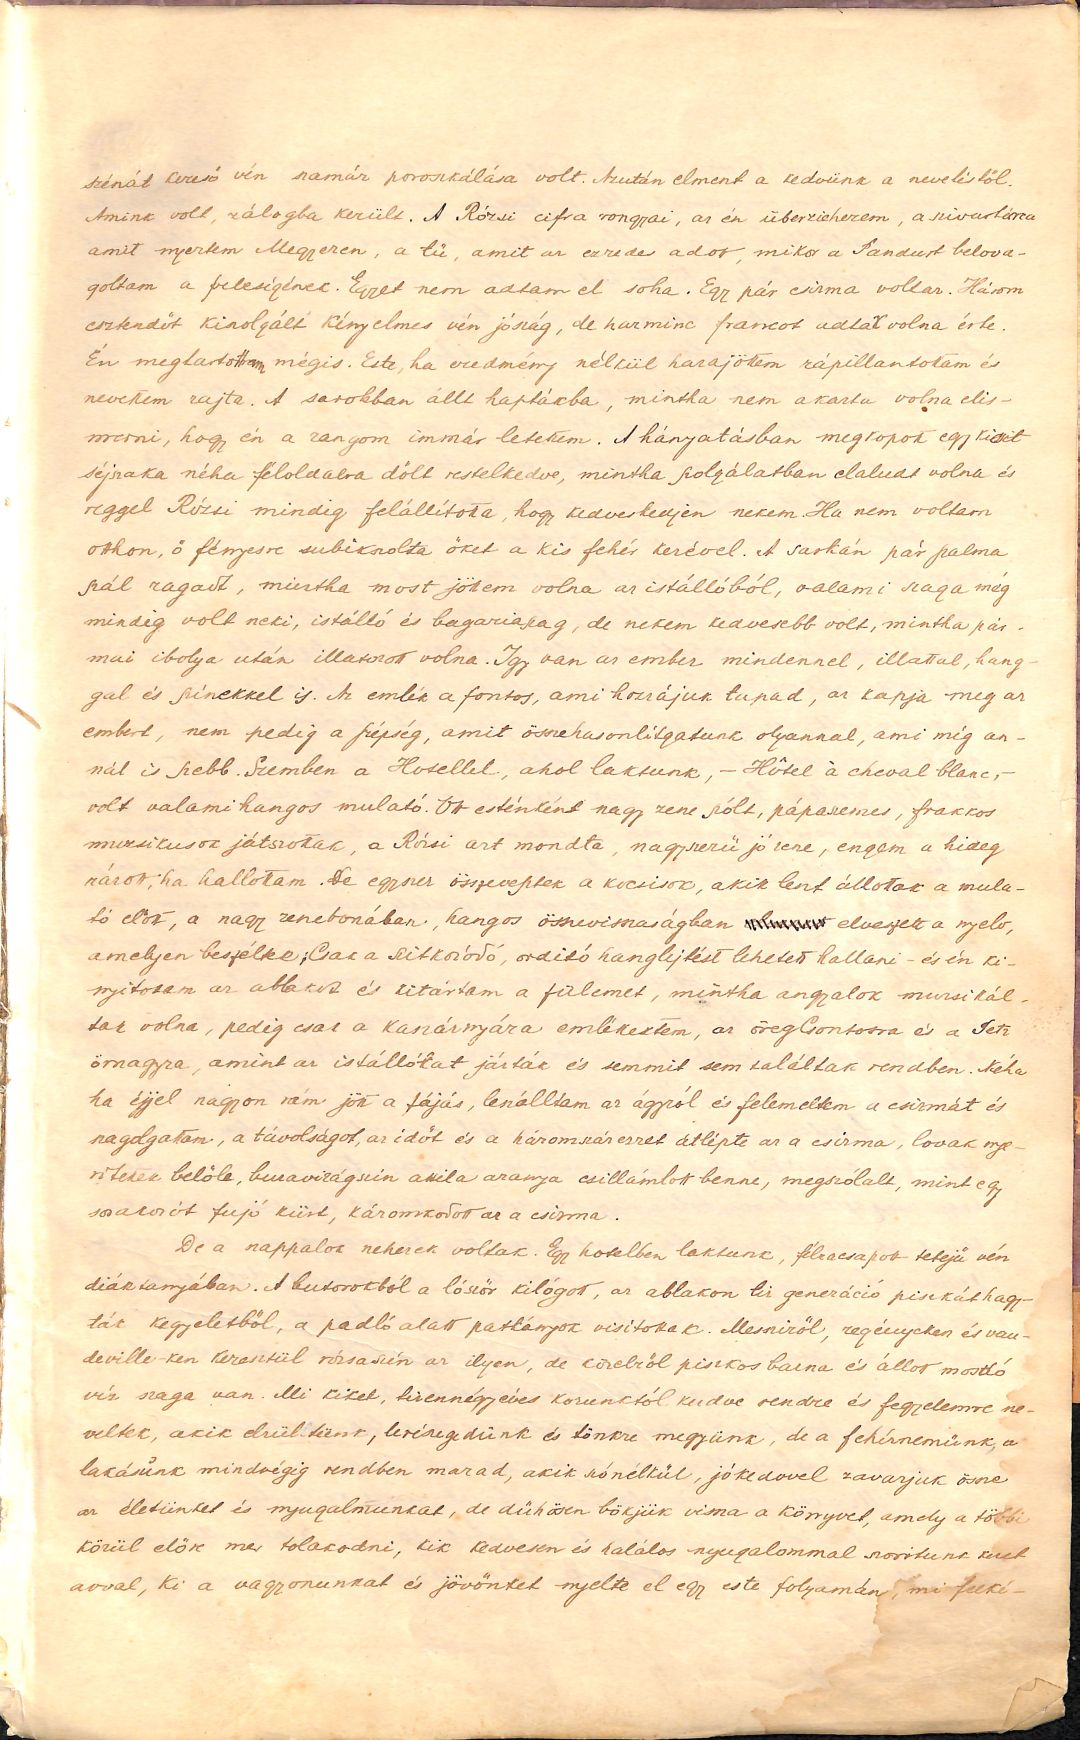 szénát kereső vén szamár poroszkálása volt. Azután elment a kedvünk a nevetéstől.
Amink volt, zálogba került. A Rózsi cifra rongyai, az én überzieherem, a szivartárca
amit nyertem Megyeren, a tű, amit az ezredes adott, mikor a Tandurt belova-
goltam a feleségének. Egyet nem adtam el soha. Egy pár csizma voltaz. Három
esztendőt kiszolgált kényelmes vén jószág, de harminc francot adtak volna érte.
Én megtartottam mégis. Este, ha eredmény nélkül hazajöttem rápillantottam és
nevettem rajta. A sarokban állt haptákba, mintha nem akarta volna elis-
merni, hogy én a rangom immár letettem. A hányatásban megkopott egy kicsit
éjszaka néha féloldalra dőlt restelkedve, mintha szolgálatban elaludt volna és
reggel Rózsi mindig felállította, hogy kedveskedjen nekem. Ha nem voltam
otthon, ő fényesre subickolta őket a kis fehér kezével. A sarkán pár szalma
szál ragadt, mintha most jöttem volna az istállóból, valami szaga még
mindig volt neki, istálló és bagariaszag, de nekem kedvesebb volt, mintha pár-
mai ibolya után illatozott volna. Így van az ember mindennel, illattal, hang-
gal és színekkel is. Az emlék a fontos, ami hozzájuk tapad, az kapja meg az
embert, nem pedig a szépség, amit összehasonlítgatunk olyannal, ami még an-
nál is szebb. Szemben a Hotellel, ahol laktunk, – Hôtel à cheval blanc, –
volt valami hangos mulató. Ott esténként nagy zene szólt, pápaszemes, frakkos
muzsikusok játszottak, a Rózsi azt mondta, nagyszerű jó zene, engem a hideg
rázott, ha hallottam. De egyszer összevesztek a kocsisok, akik lent állottak a mula-
tó előtt, a nagy zenebonában, hangos összevisszaságban elveszett a nyelv,
amelyen beszéltek; Csak a szitkozódó, ordító hanglejtést lehetett hallani – és én ki-
nyitottam az ablakot és kitártam a fülemet, mintha angyalok muzsikál-
tak volna, pedig csak a kaszárnyára emlékeztem, az öreg Csontosra és a Petz
őrnagyra, amint az istállókat járták és semmit sem találtak rendben. Néha
ha éjjel nagyon rám jött a fájás, leszálltam az ágyról és felemeltem a csizmát és
szagolgattam, a távolságot, az időt és a háromszázezret átlépte az a csizma, lovak nye-
rítettek belőle, búzavirágszín attila aranya csillámlott benne, megszólalt, mint egy
sorakozót fujó kürt, káromkodott az a csizma.
De a nappalok nehezek voltak. Egy hotelben laktunk, félracsapott tetejű vén
diáktanyában. A butorokból a lószőr kilógott, az ablakon tíz generáció piszkát hagy-
ták kegyeletből, a padló alatt patkányok visítottak. Messziről, regényeken és vau-
deville-ken keresztül rózsaszín az ilyen, de közelről piszkos barna és állott mosdó
víz szaga van. Mi kiket, tizennégyéves korunktól kezdve rendre és fegyelemre ne-
veltek, akik elzüllünk, lerészegedünk és tönkre megyünk, de a fehérneműnk, a
lakásunk mindvégig rendben marad, akik szónélkül, jókedvvel zavarjuk össze
az életünket és nyugalmunkat, de dühösen bökjük vissza a könyvet, amely a többi
közül előre mer tolakodni, kik kedvesen és halálos nyugalommal szorítunk kezet
avval, ki a vagyonunkat és jövőnket nyelte el egy este folyamán, mi